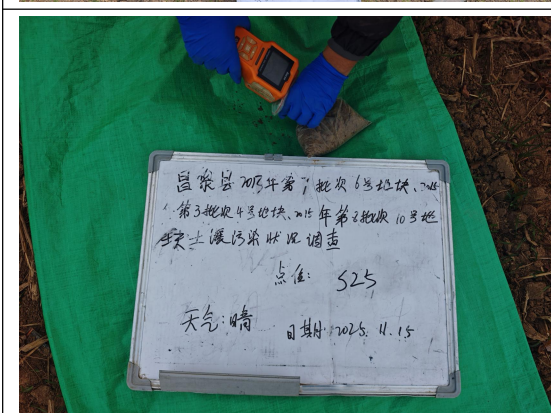 昌黎县2013年第1批次6号地块、2015
第3批次4号地块、2015年第2批次10号地
块土壤污染状况调查
点位: S25
天气:晴 日期:2025.11.15